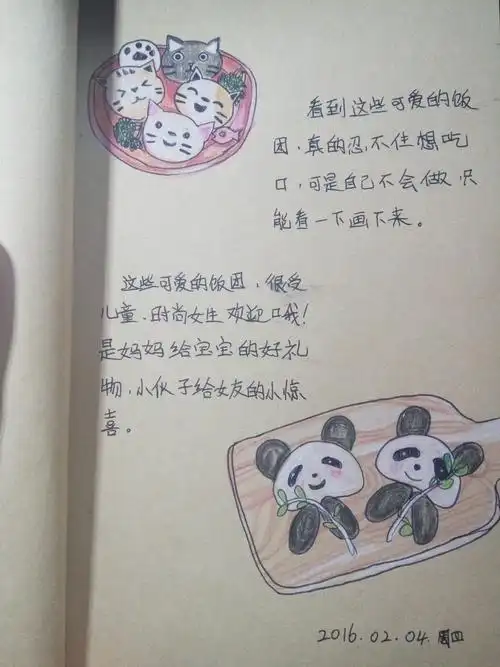 看到这些可爱的饭
团，真的忍不住想吃
口，可是自己不会做.只
能看一下画下来。
这些可爱的饭团，很受
儿童、时尚女生欢迎哦！
是妈妈给宝宝的好礼
物，小伙子给女友的小惊
喜。
2016.02.04.周四